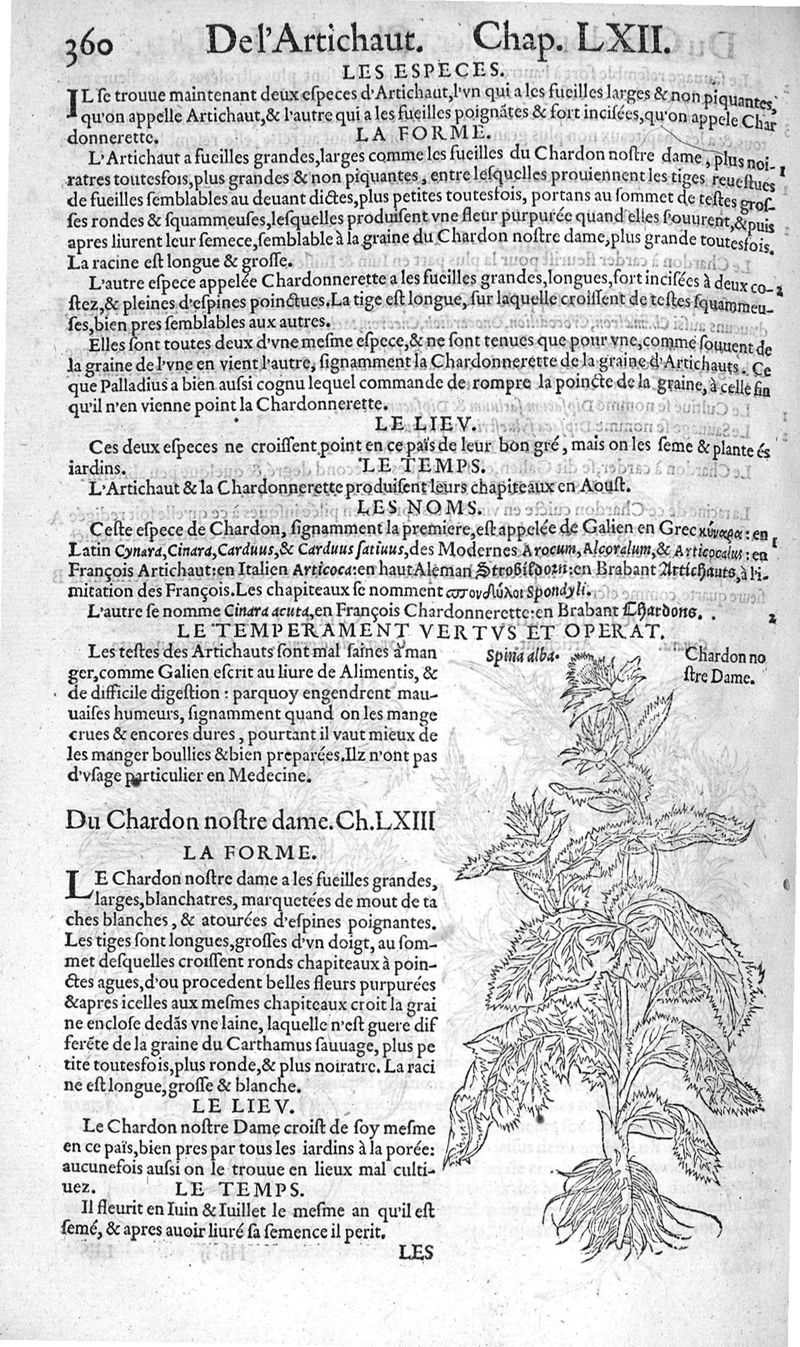 360 De l'Artichaut. Chap. LXII.
LES ESPECES.
IL se trouue maintenant deux especes d'Artichaut, l'vn qui a les fueilles larges & non piquantes,
qu'on appelle Artichaut, & l'autre qui a les fueilles poignãtes & fort incisées, qu'on appele Char
donnerette. LA FORME.
L'Artichaut a fueilles grandes, larges comme les fueilles du Chardon nostre dame, plus noi-
ratres toutesfois, plus grandes & non piquantes, entre lesquelles prouiennent les tiges reuestues 1
de fueilles semblables au deuant dictes, plus petites toutesfois, portans au sommet de testes gros-
ses rondes & squammeuses, lesquelles produisent vne fleur purpurée quand elles s'ouurent, & puis
apres liurent leur semẽce, semblable à la graine du Chardon nostre dame, plus grande toutesfois.
La racine est longue & grosse.
L'autre espece appelée Chardonnerette a les fueilles grandes, longues, fort incisées à deux co- 2
stez, & pleines d'espines poinctues. La tige est longue, sur laquelle croissent de testes squammeu-
ses, bien pres semblables aux autres.
Elles sont toutes deux d'vne mesme espece, & ne sont tenues que pour vne, comme souuent de
la graine de l'vne en vient l'autre, signamment la Chardonnerette de la graine d'Artichauts. Ce
que Palladius a bien aussi cognu lequel commande de rompre la poincte de la graine, à celle fin
qu'il n'en vienne point la Chardonnerette.
LE LIEV.
Ces deux especes ne croissent point en ce païs de leur bon gré, mais on les seme & plante és
iardins. LE TEMPS.
L'Artichaut & la Chardonnerette produisent leurs chapiteaux en Aoust.
LES NOMS.
Ceste espece de Chardon, signamment la premiere, est appelée de Galien en Grec κύναρα: en 1
Latin Cynara, Cinara, Carduus, & Carduus satiuus, des Modernes Arocum, Alcoralum, & Articocalus: en
François Artichaut: en Italien Articoca: en haut Aleman Strobildorn: en Brabant Artichauts, à l'i-
mitation des François. Les chapiteaux se nomment σπονδύλοι Spondyli.
L'autre se nomme Cinara acuta, en François Chardonnerette: en Brabant Chardons. 2
LE TEMPERAMENT VERTVS ET OPERAT.
Les testes des Artichauts sont mal saines à man
ger, comme Galien escrit au liure de Alimentis, &
de difficile digestion: parquoy engendrent mau-
uaises humeurs, signamment quand on les mange
crues & encores dures, pourtant il vaut mieux de
les manger boullies & bien preparées. Ilz n'ont pas
d'vsage particulier en Medecine.
Spina alba.
Chardon no
stre Dame.
Du Chardon nostre dame. Ch. LXIII
LA FORME.
LE Chardon nostre dame a les fueilles grandes,
larges, blanchatres, marquetées de mout de ta
ches blanches, & atourées d'espines poignantes.
Les tiges sont longues, grosses d'vn doigt, au som-
met desquelles croissent ronds chapiteaux à poin-
ctes agues, d'ou procedent belles fleurs purpurées
& apres icelles aux mesmes chapiteaux croit la grai
ne enclose dedãs vne laine, laquelle n'est guere dif
ferẽte de la graine du Carthamus sauuage, plus pe
tite toutesfois, plus ronde, & plus noiratre. La raci
ne est longue, grosse & blanche.
LE LIEV.
Le Chardon nostre Dame croist de soy mesme
en ce païs, bien pres par tous les iardins à la porée:
aucunefois aussi on le trouue en lieux mal culti-
uez. LE TEMPS.
Il fleurit en Iuin & Iuillet le mesme an qu'il est
semé, & apres auoir liuré sa semence il perit.
LES